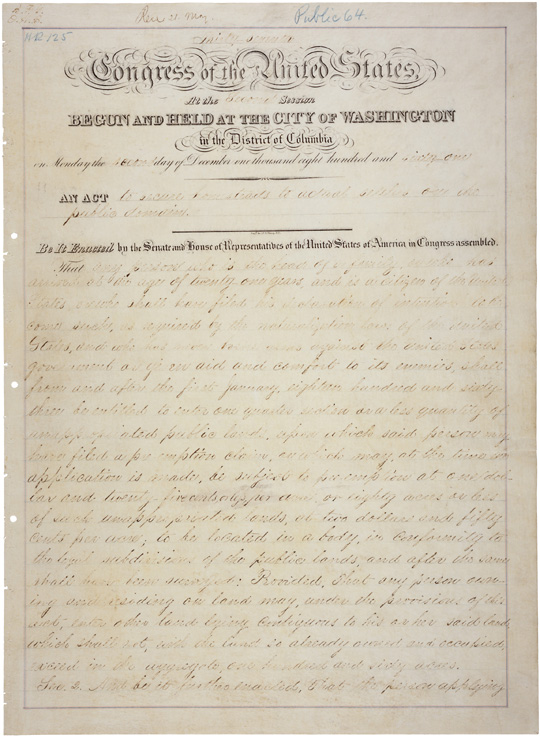 Public 64.
HR 125
Thirty-seventh
Congress of the United States,
At the second Session
BEGUN AND HELD AT THE CITY OF WASHINGTON
in the District of Columbia
on Monday the second day of December one thousand eight hundred and sixty-one
AN ACT to secure homesteads to actual settlers on the
public domain.
Be It Enacted by the Senate and House of Representatives of the United States of America in Congress assembled,
That any person who is the head of a family, or who has
arrived at the age of twenty one years, and is a citizen of the United
States, or who shall have filed his declaration of intention to be-
come such, as required by the naturalization laws of the United
States, and who has never borne arms against the United States
government or given aid and comfort to its enemies, shall
from and after the first January, eighteen hundred and sixty
three be entitled to enter one quarter section or a less quantity of
unappropriated public lands, upon which said person may
have filed a preemption claim, or which may, at the time the
application is made, be subject to preemption at one dol-
lar and twenty-five cents per acre, or eighty acres or less
of such unappropriated lands, at two dollars and fifty
cents per acre; to be located in a body, in conformity to
the legal subdivisions of the public lands, and after the same
shall have been surveyed: Provided, That any person own-
ing and residing on land may, under the provisions of this
act, enter other land lying contiguous to his or her said land
which shall not, with the land so already owned and occupied,
exceed in the aggregate one hundred and sixty acres.
Sec. 2. And be it further enacted, That the person applying